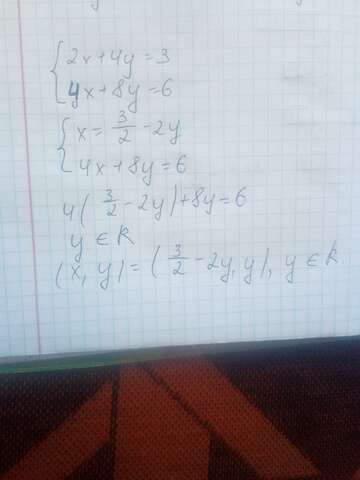 { 2x+4y=3
4x+8y=6
{ x= 3/2 -2y
4x+8y=6
4( 3/2 -2y)+8y=6
y ∈ R
(x, y)=( 3/2 -2y, y), y ∈ R